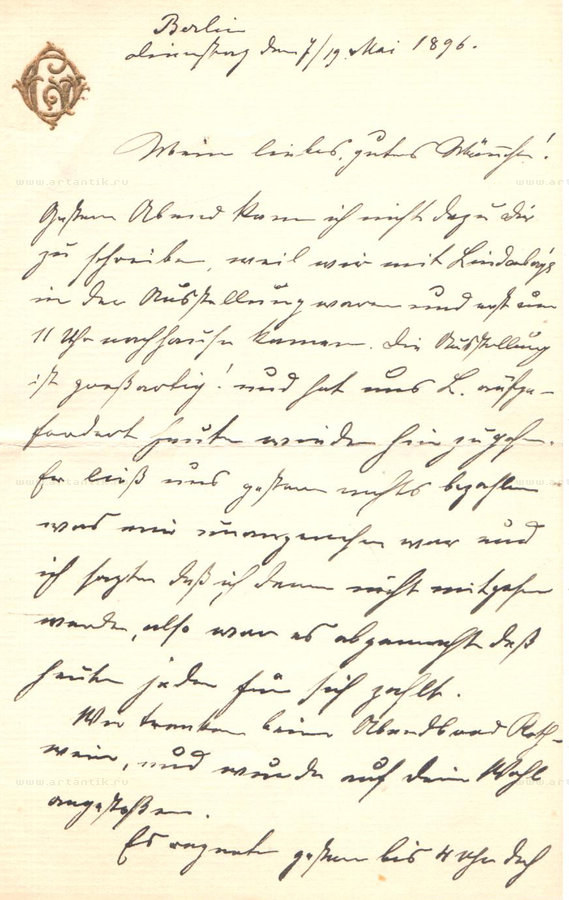 Berlin
Dienstag den 7/19 Mai 1896.
Mein liebes, gutes Männchen!
Gestern Abend kam ich nicht dazu Dir
zu schreiben, weil wir mit
in der Ausstellung waren und erst um
11 Uhr nachhause kamen. Die Ausstellung
ist großartig! und hat uns L. aufge-
fordert heute wieder hinzugehen.
Er ließ uns gestern nichts bezahlen
was mir unangenehm war und
ich sagte daß ich dann nicht mitgehen
werde, also war es abgemacht daß
heute jeder für sich zahlt.
Wir tranken beim Abendbrod Roth-
wein, und wurde auf Dein Wohl
angestoßen.
Es regnete gestern bis 4 Uhr doch
www.artantik.ru